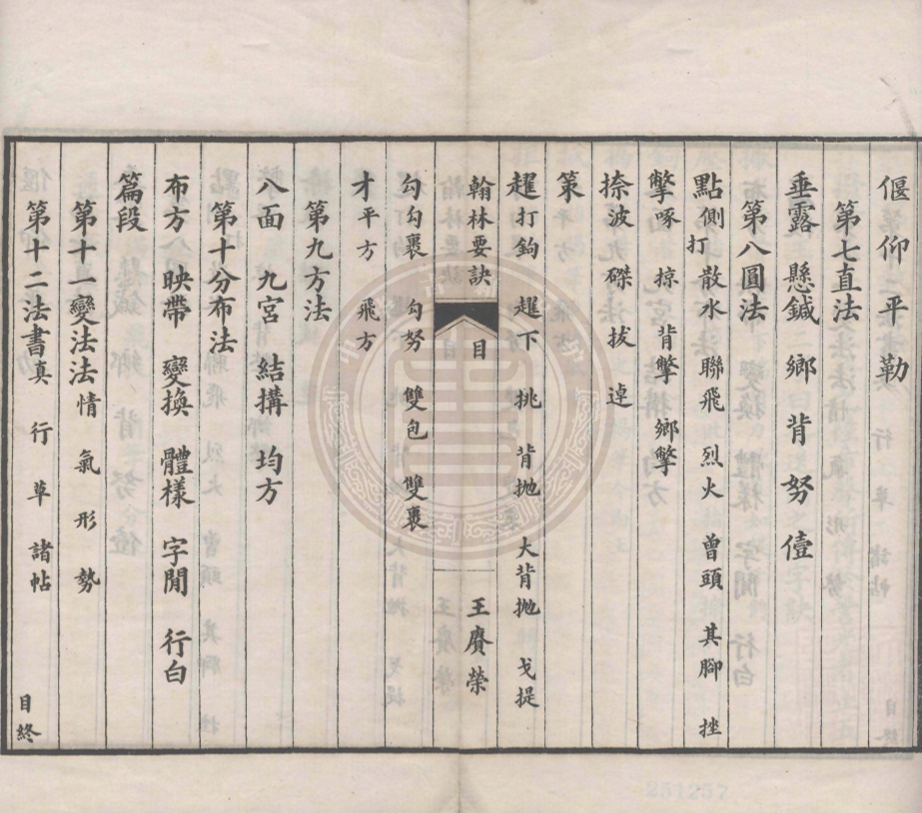 偃 仰 平 勒
第七直法
垂露 懸鍼 鄉 背 努 僼
第八圓法
點側打 散水 聯飛 烈火 曾頭 其腳 挫
撆啄 掠 背撆 鄉撆
捺波 磔 拔 逴
策
趯打鈎 趯下 挑 背拋 大背拋 戈提
翰林要訣 目 王賡榮
勾勾裹 勾努 雙包 雙裹
才平方 飛方
第九方法
八面 九宮 結搆 均方
第十分布法
布方 映帶 變換 體樣 字閒 行白
篇段
第十一變法法情 氣 形 勢
第十二法書真 行 草 諸帖
目終
251257